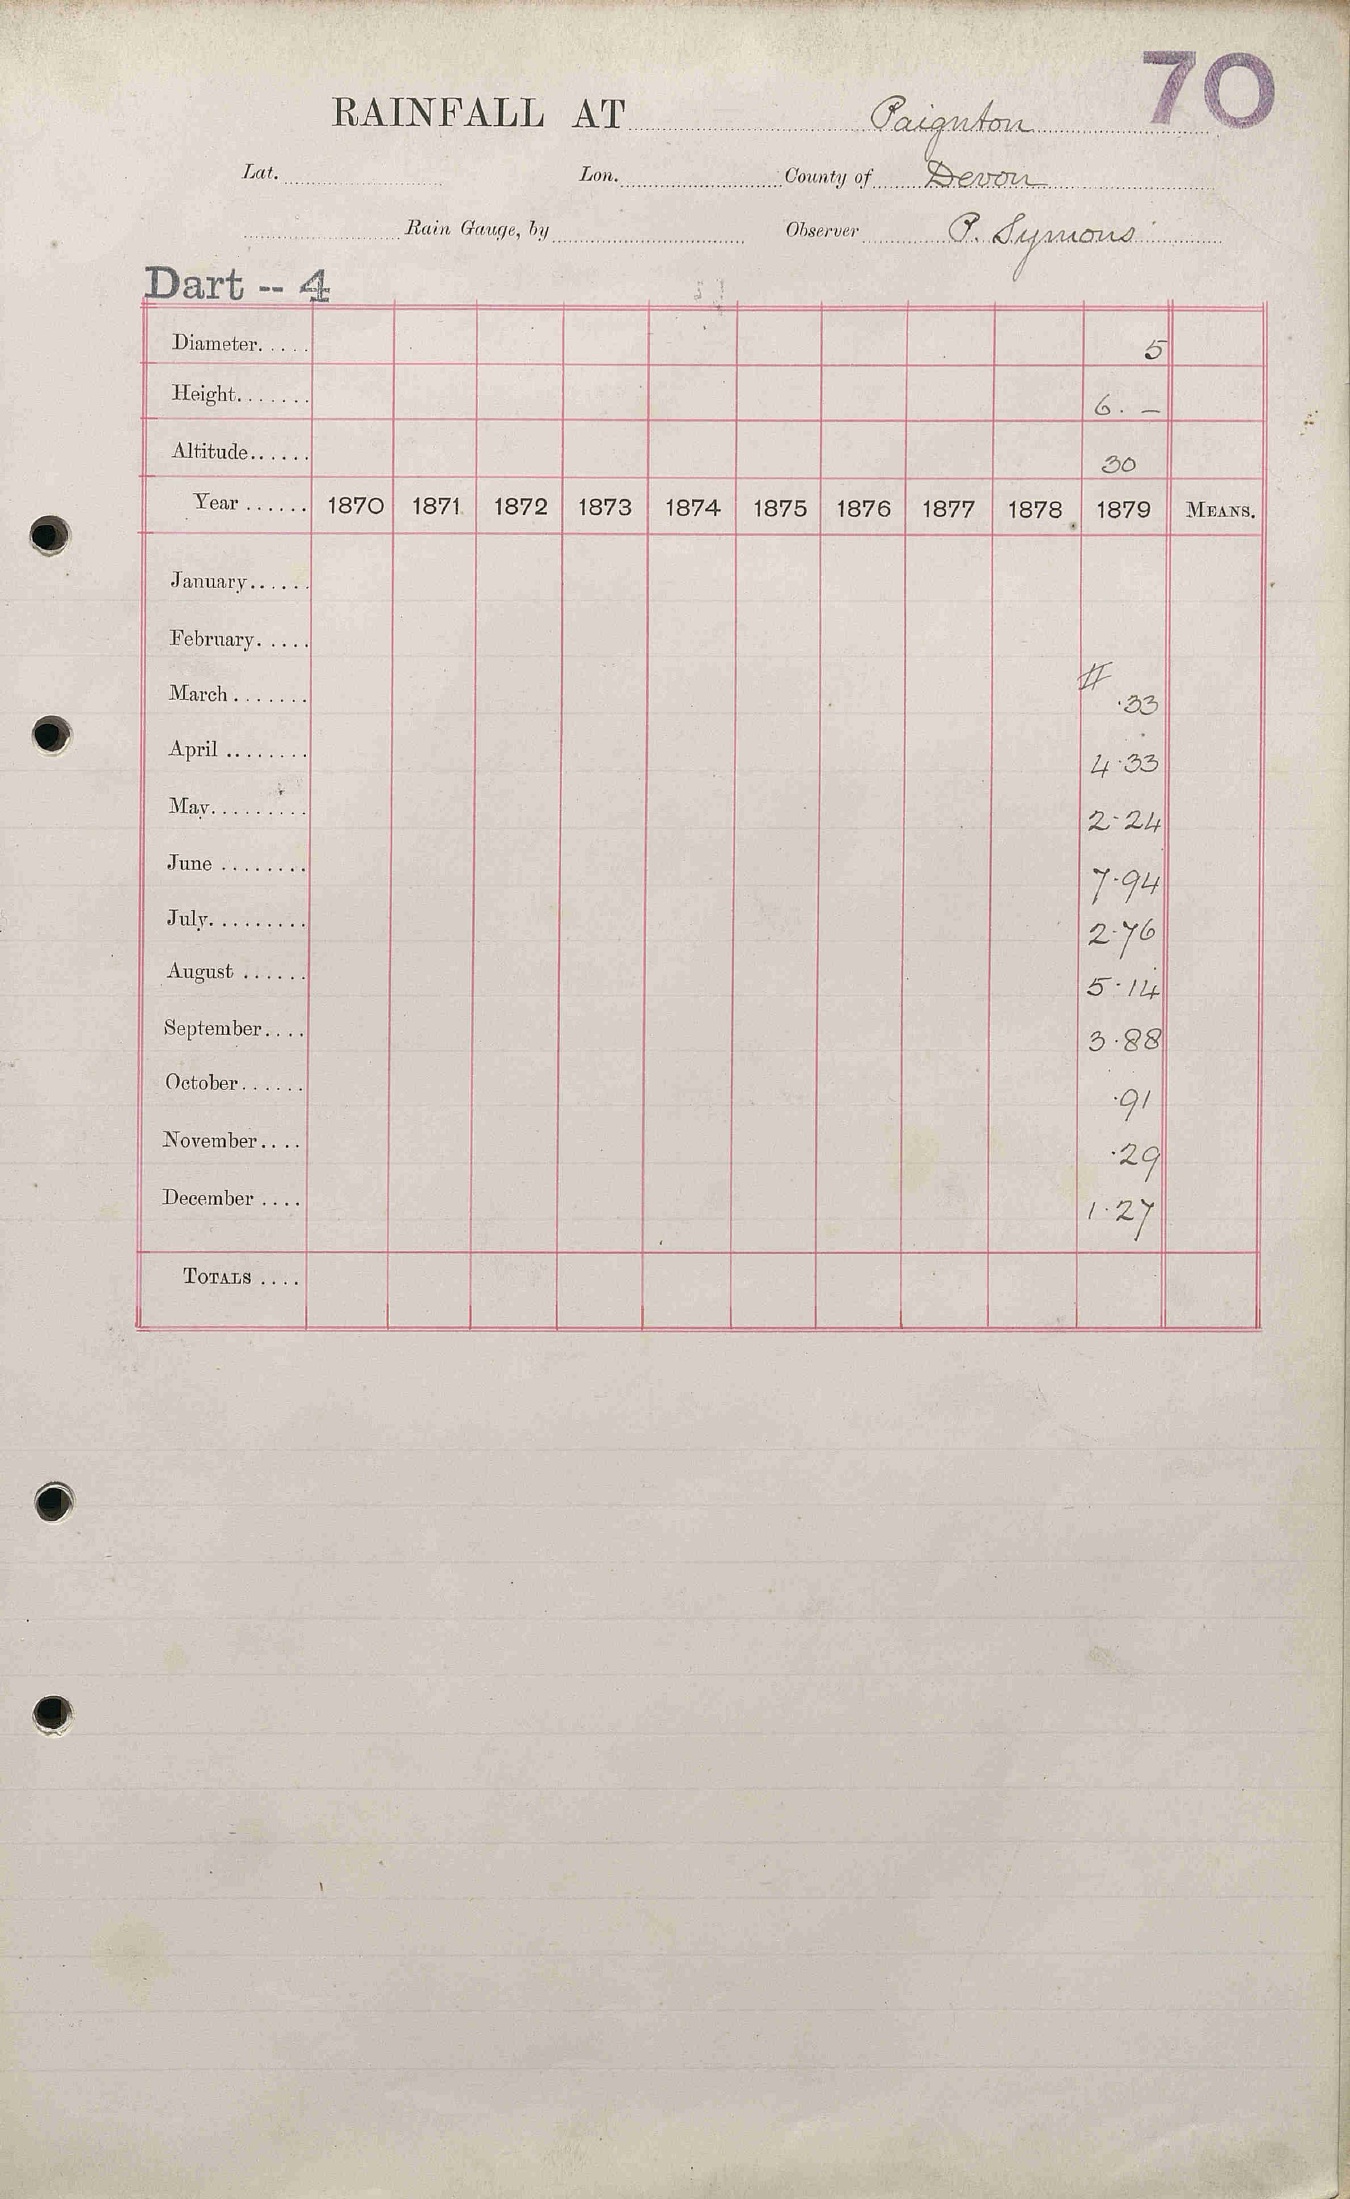 70
RAINFALL AT Paignton
Lat. Lon. County of Devon
Rain Gauge, by Observer P. Symons
Dart -- 4
Diameter..... 5
Height....... 6. —
Altitude...... 30
Year ...... 1870 1871 1872 1873 1874 1875 1876 1877 1878 1879 MEANS.
January......
February.....
#
March ....... ·33
April ........ 4·33
May......... 2·24
June ........ 7·94
July......... 2·76
August ...... 5·14
September.... 3·88
October...... ·91
November.... ·29
December .... 1·27
TOTALS ....